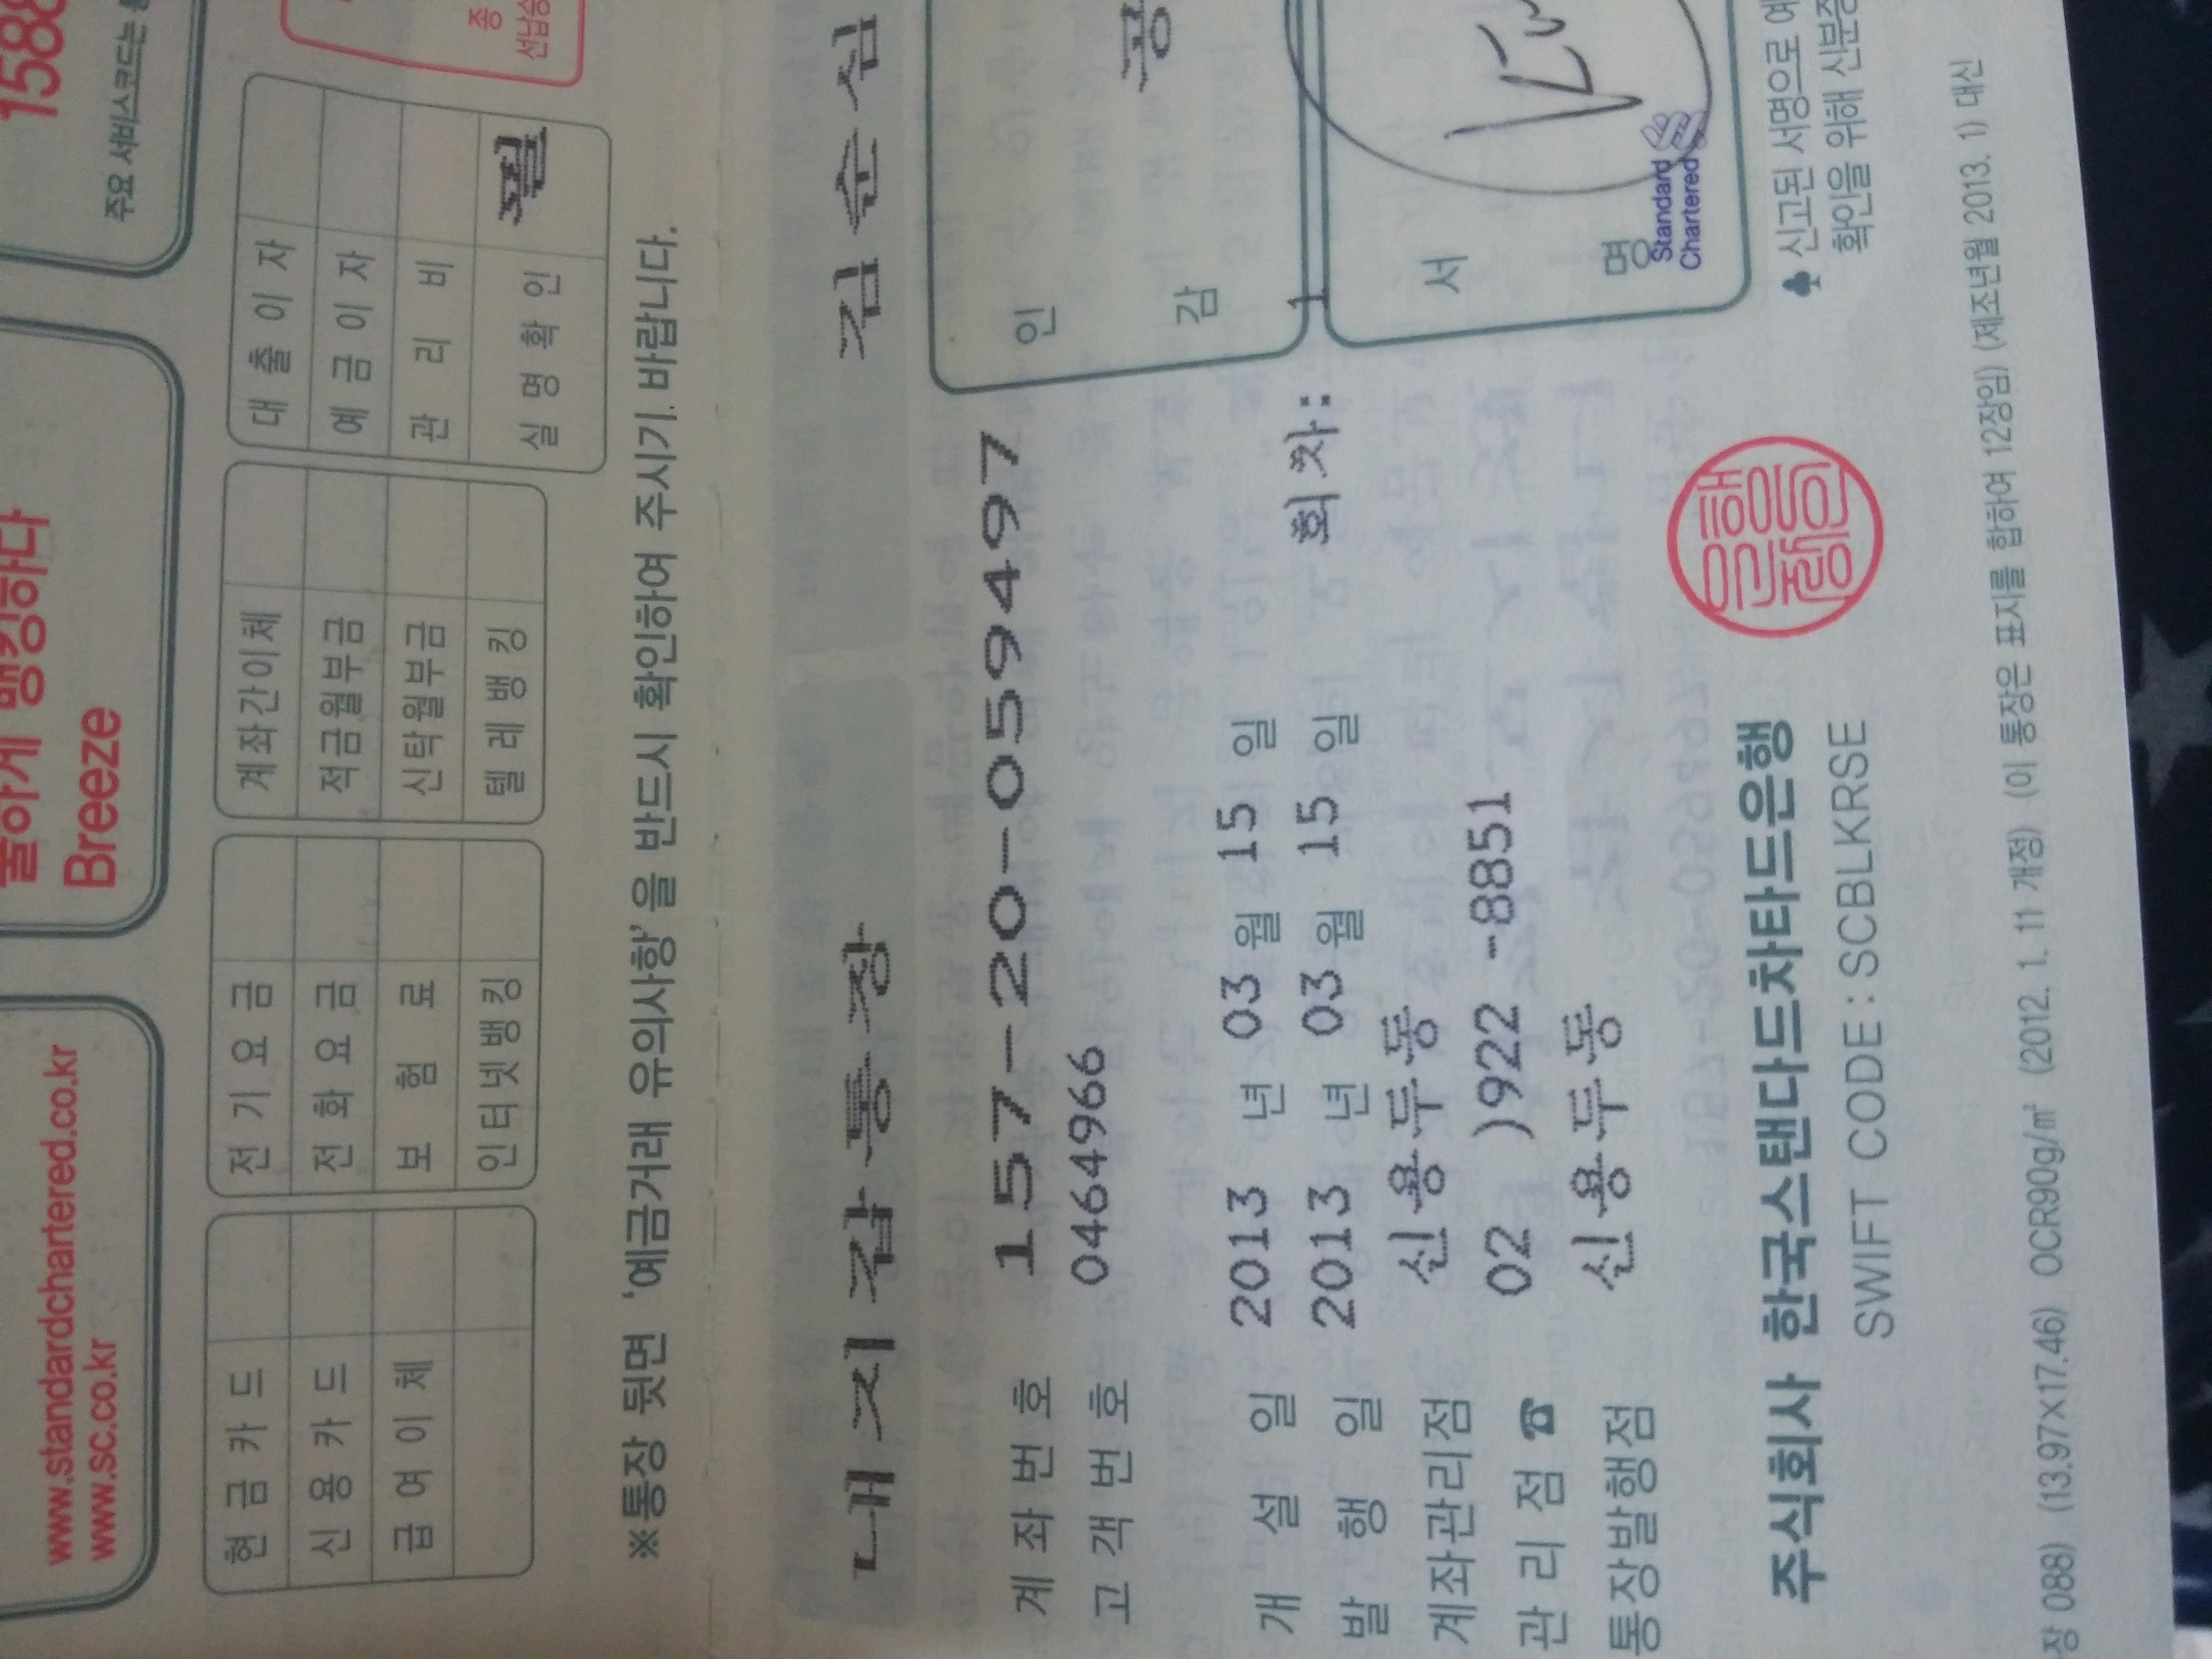 하다
Breeze
www.standardchartered.co.kr
www.sc.co.kr
1588
주요 서비스코드는
종
선납승
현금카드
신용카드
급여이체
전기요금
전화요금
보험료
인터넷뱅킹
계좌간이체
적금월부금
신탁월부금
텔레뱅킹
대출이자
예금이자
관리비
실명확인
※통장 뒷면 '예금거래 유의사항'을 반드시 확인하여 주시기 바랍니다.
내지갑통장 김순심
계좌번호 157-20-059497
고객번호 04649966
개설일 2013 년 03 월 15 일
발행일 2013 년 03 월 15 일 회차: 1
계좌관리점 신용두동
관리점☎ 02 )922 -8851
통장발행점 신용두동
인감
공
서명
Standard
Chartered
주식회사 한국스탠다드차타드은행
SWIFT CODE : SCBLKRSE
♣ 신고된 서명으로 예
확인을 위해 신분증
장 088) (13.97×17.46) OCR90g/㎡ (2012. 1. 11 개정) (이 통장은 표지를 합하여 12장임) (제조년월 2013. 1) 대신